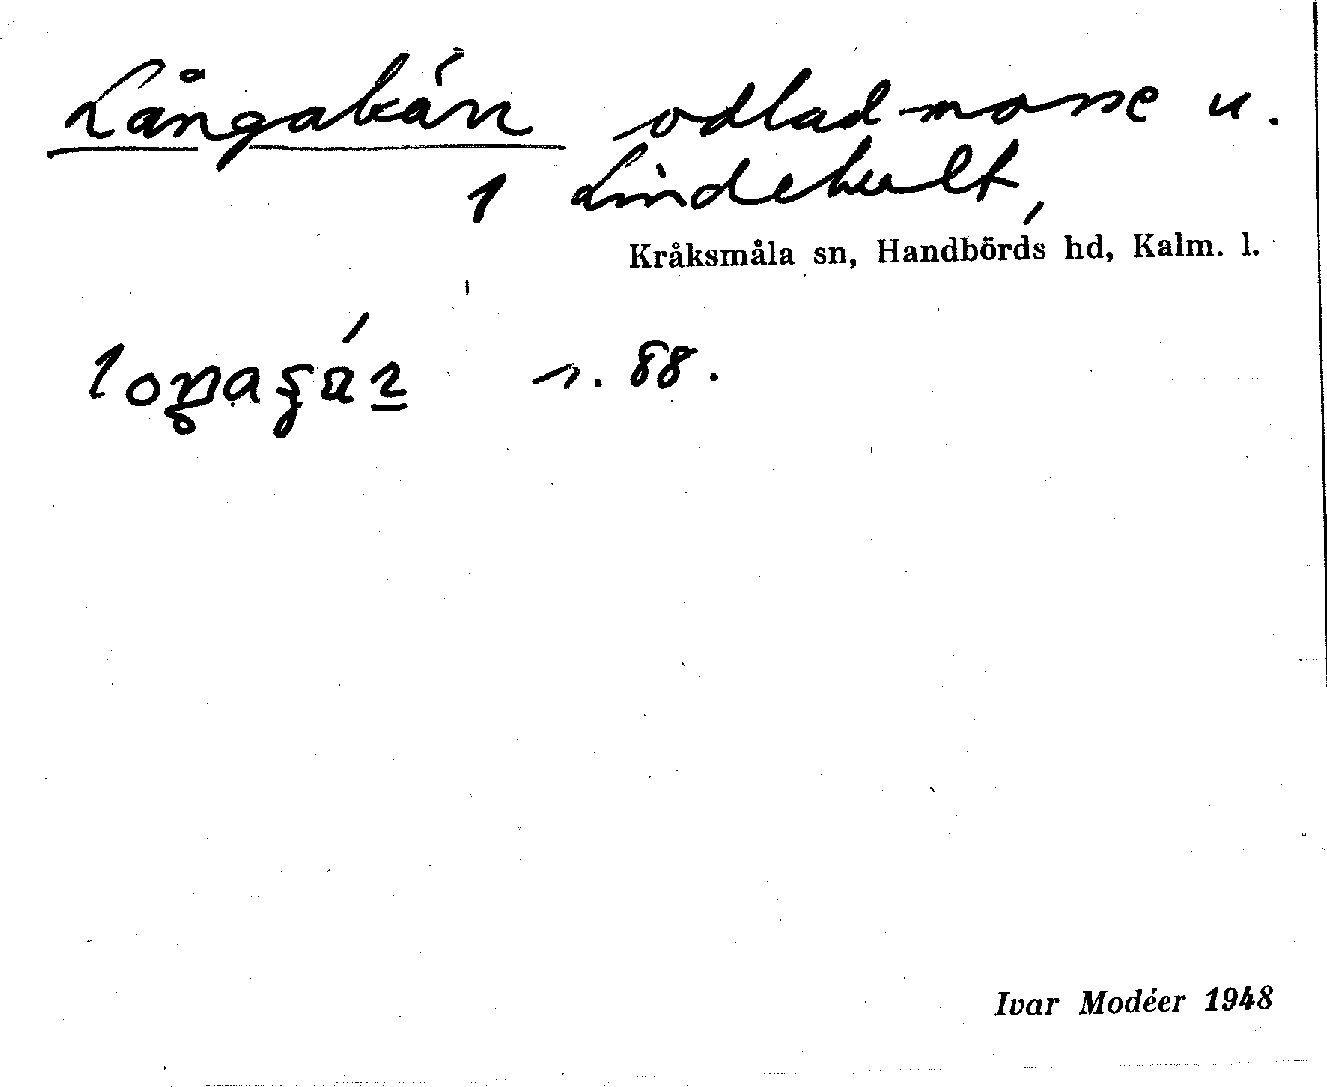 Långakärr odlad mosse u.
1 Lindehult,
Kråksmåla sn, Handbörds hd, Kalm. l.
s. 88.
Ivar Modéer 1948